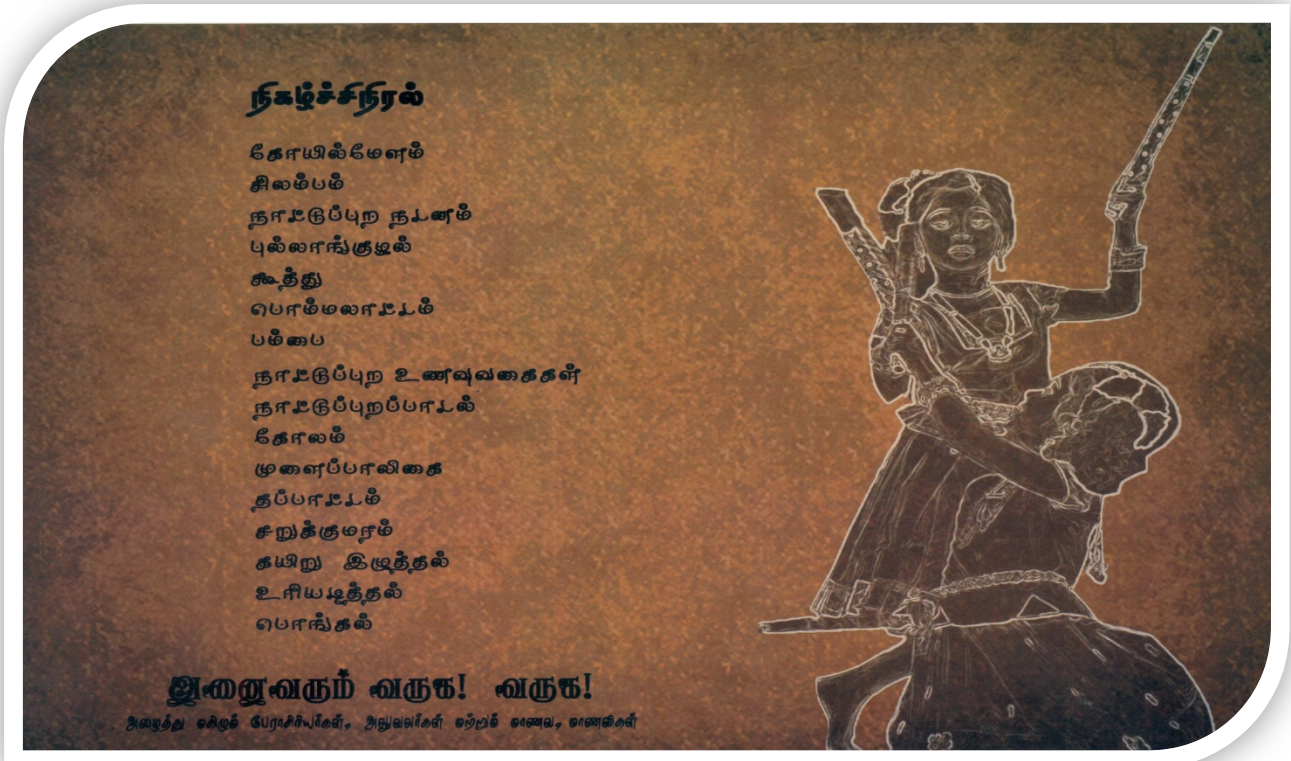 நிகழ்ச்சிநிரல்
கோயில்மேளம்
சிலம்பம்
நாட்டுப்புற நடனம்
புல்லாங்குழல்
கூத்து
பொம்மலாட்டம்
பம்பை
நாட்டுப்புற உணவுவகைகள்
நாட்டுப்புறப்பாடல்
கோலம்
முளைப்பாலிகை
தப்பாட்டம்
சறுக்குமரம்
கயிறு இழுத்தல்
உரியடித்தல்
பொங்கல்
அனைவரும் வருக! வருக!
அழைத்து மகிழும் பேராசிரியர்கள், அலுவலர்கள் மற்றும் மாணவ, மாணவிகள்